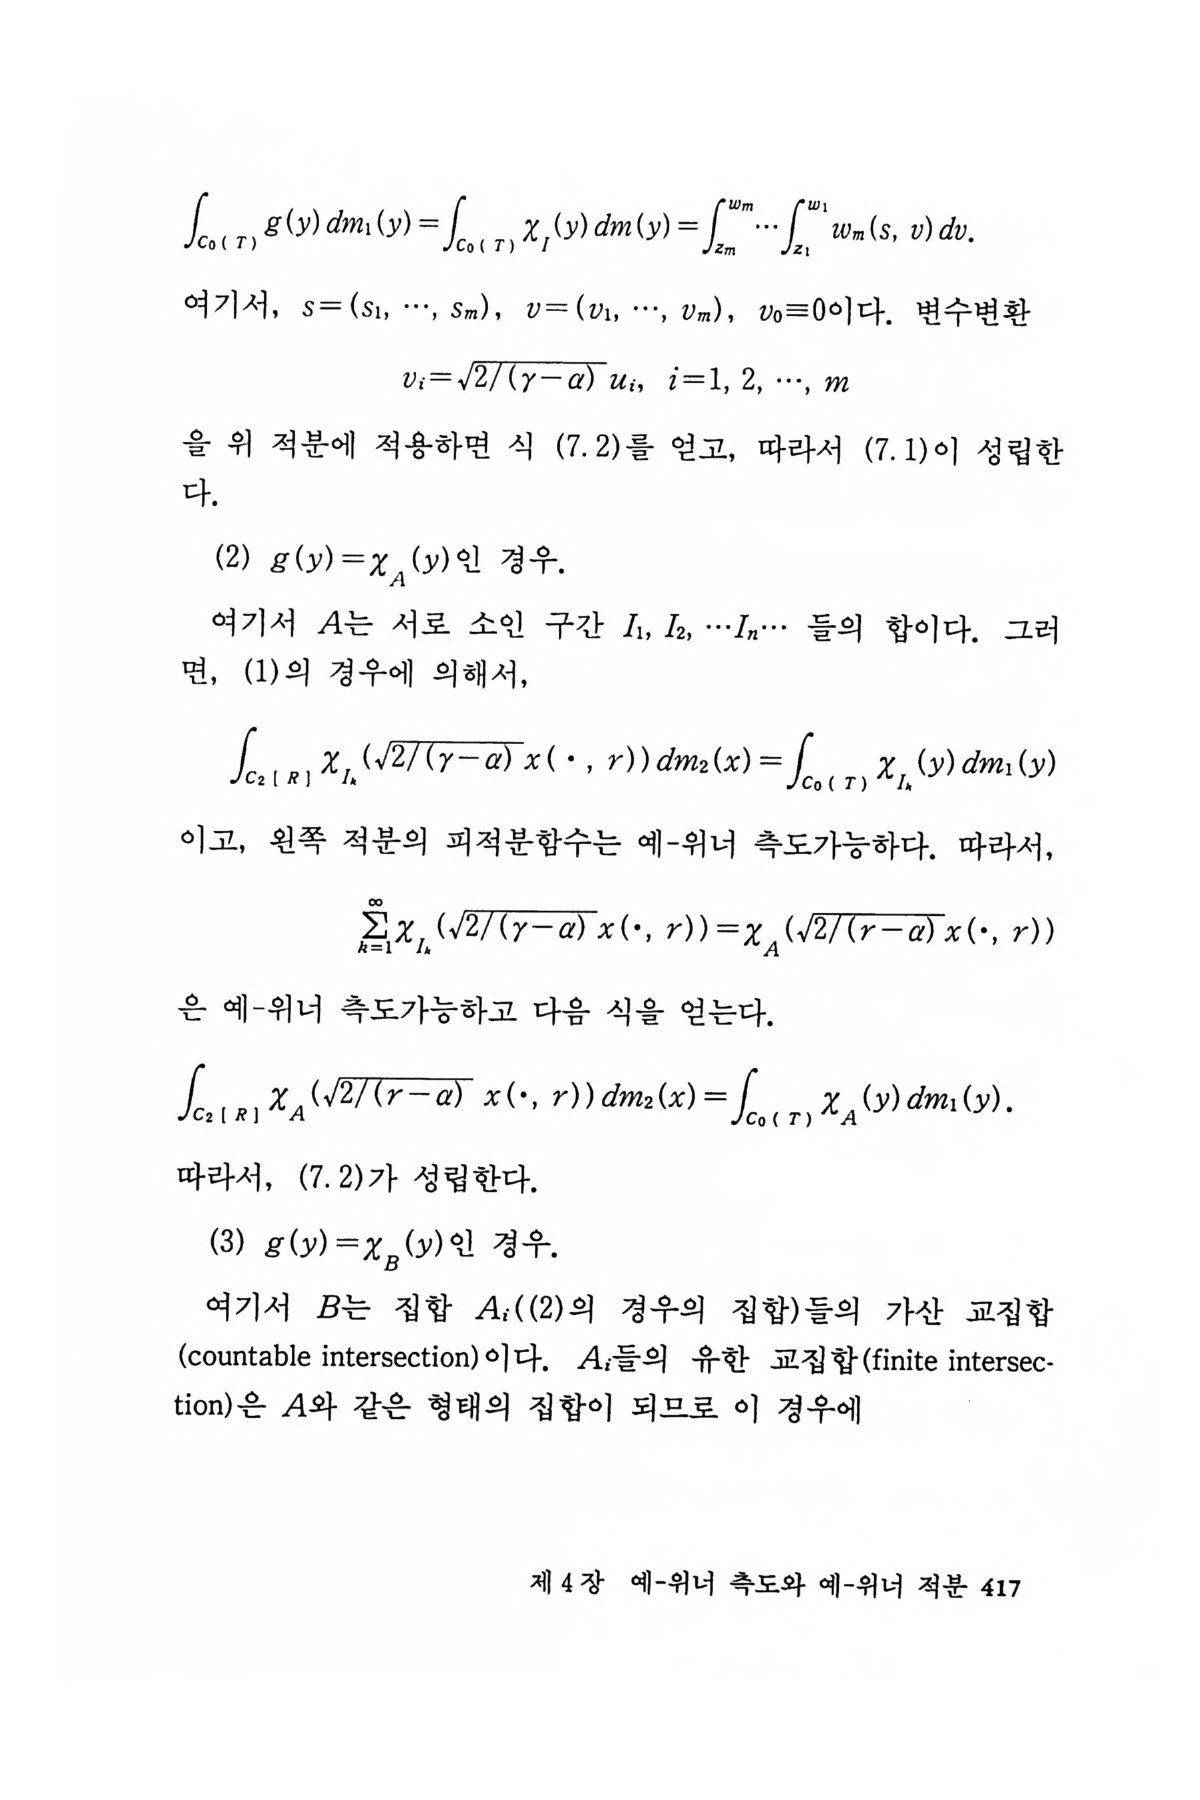 ∫_{C₀(T)} g(y) dm₁(y) = ∫_{C₀(T)} χ_I(y) dm(y) = ∫_{z_m}^{w_m} ⋯ ∫_{z₁}^{w₁} w_m(s, v) dv.
여기서, s=(s₁, ⋯, s_m), v=(v₁, ⋯, v_m), v₀≡0이다. 변수변환
v_i=√(2/(γ−α)) u_i, i=1, 2, ⋯, m
을 위 적분에 적용하면 식 (7.2)를 얻고, 따라서 (7.1)이 성립한
다.
(2) g(y)=χ_A(y)인 경우.
여기서 A는 서로 소인 구간 I₁, I₂, ⋯I_n⋯ 들의 합이다. 그러
면, (1)의 경우에 의해서,
∫_{C₂[R]} χ_{I_k}(√(2/(γ−α)) x(·, r)) dm₂(x) = ∫_{C₀(T)} χ_{I_k}(y) dm₁(y)
이고, 왼쪽 적분의 피적분함수는 예-위너 측도가능하다. 따라서,
∑_{k=1}^{∞} χ_{I_k}(√(2/(γ−α)) x(·, r)) = χ_A(√(2/(r−α)) x(·, r))
은 예-위너 측도가능하고 다음 식을 얻는다.
∫_{C₂[R]} χ_A(√(2/(r−α)) x(·, r)) dm₂(x) = ∫_{C₀(T)} χ_A(y) dm₁(y).
따라서, (7.2)가 성립한다.
(3) g(y)=χ_B(y)인 경우.
여기서 B는 집합 A_i((2)의 경우의 집합)들의 가산 교집합
(countable intersection)이다. A_i들의 유한 교집합(finite intersec-
tion)은 A와 같은 형태의 집합이 되므로 이 경우에
제 4 장 예-위너 측도와 예-위너 적분 417